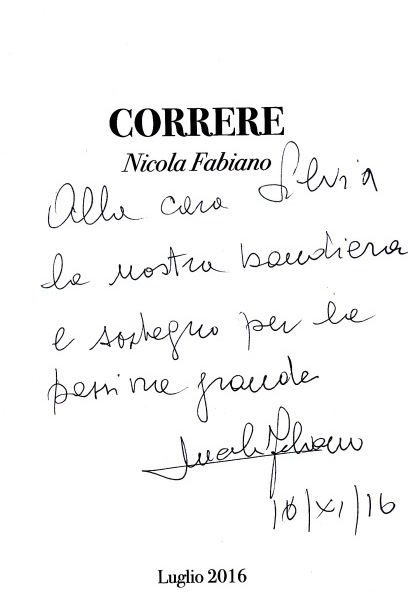 CORRERE
Nicola Fabiano
Alla cara Silvia
la nostra bandiera
e sostegno per la
passione grande
Nicola Fabiano
10/XI/16
Luglio 2016